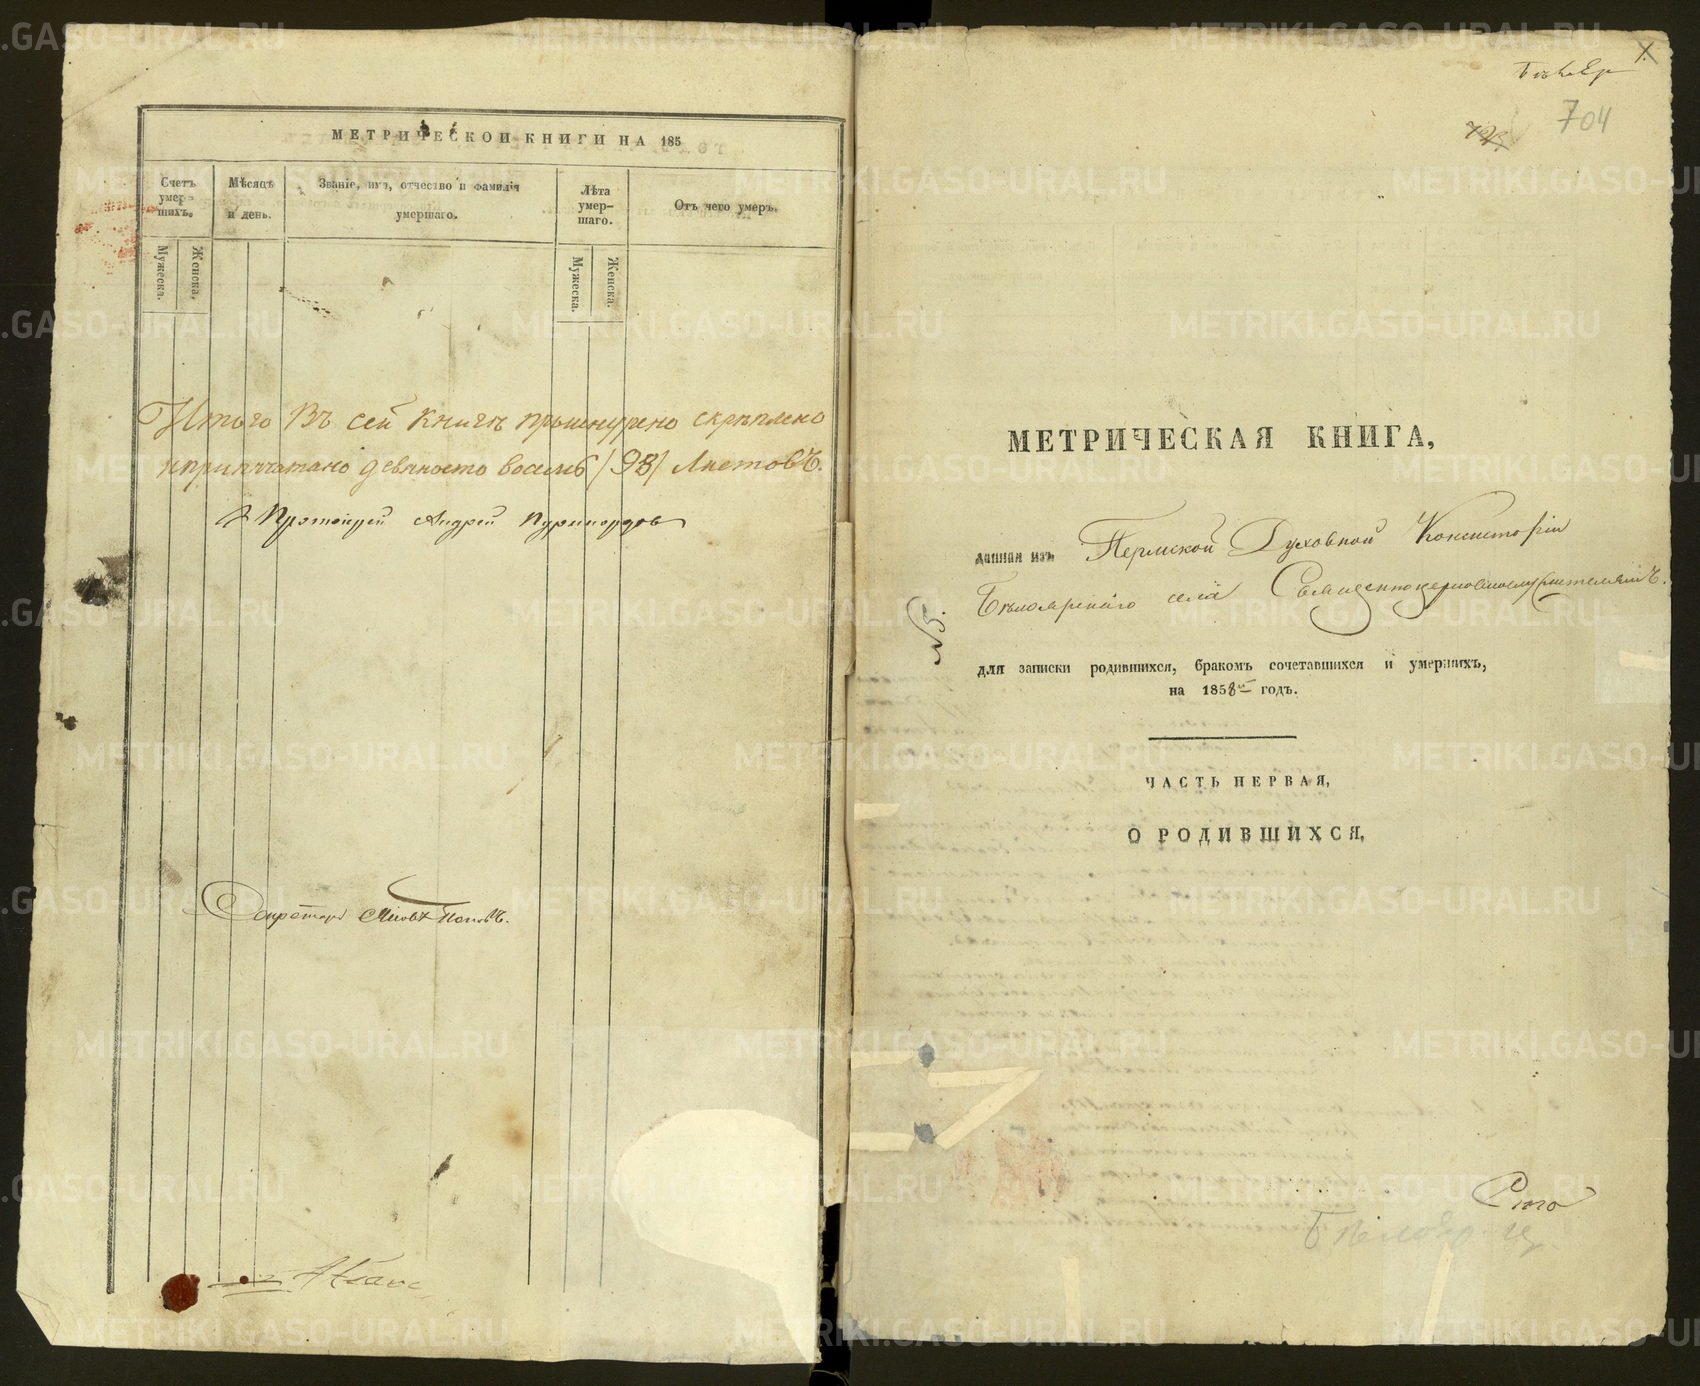 МЕТРИЧЕСКОЙ КНИГИ НА 185
Счетъ умершихъ.
Мѣсяцъ и день.
Званіе, имя, отчество и фамилія умершаго.
Лѣта умершаго.
Отъ чего умеръ.
Мужеска.
Женска.
Мужеска.
Женска.
Итого Въ сей Книгѣ прошнурено скрѣплено
и припечатано девяносто восемь /98/ Листовъ.
Протоіерей Андрей
Секретарь Поповъ.
704
МЕТРИЧЕСКАЯ КНИГА,
данная изъ Пермской Духовной Консисторіи
Бѣлоярскаго села Священноцерковнослужителямъ.
№5.
для записки родившихся, бракомъ сочетавшихся и умершихъ,
на 1858й годъ.
ЧАСТЬ ПЕРВАЯ,
О РОДИВШИХСЯ,
METRIKI.GASO-URAL.RU